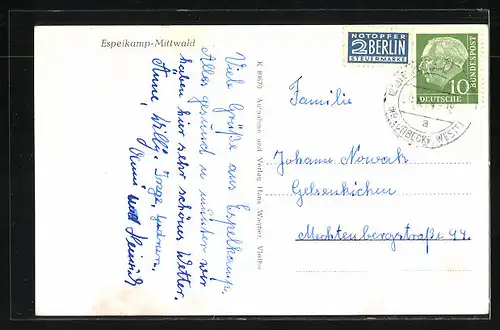 Espelkamp-Mittwald
Viele Grüße aus Espelkamp.
Alles gesund u. munter wir
haben hier sehr schönes Wetter.
Anne, Willy, Inge,
und Heinrich
K 89679 Aufnahme und Verlag Hans Wagner, Vlotho
NOTOPFER
2 BERLIN
STEUERMARKE
10
DEUTSCHE
BUNDESPOST
LÜBBECKE (WESTF)
a
Familie
Johann Nowak
Gelsenkirchen
Mechtenbergstraße 44.